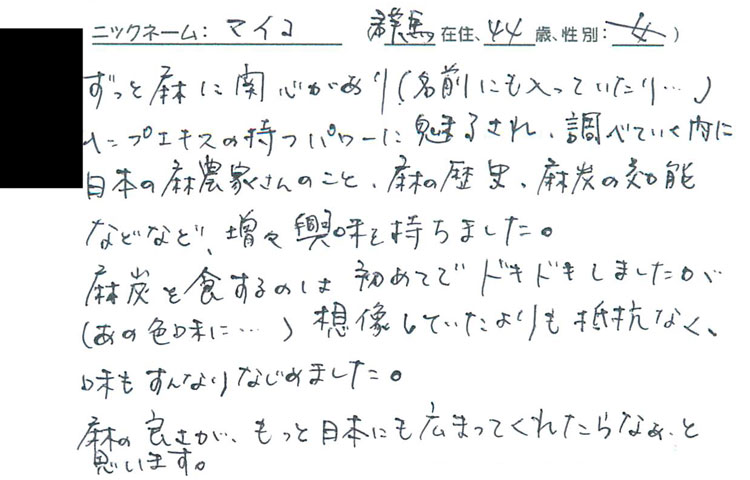 ニックネーム：マイコ （群馬 在住、44 歳、性別：女 ）
ずっと麻に関心があり（名前にも入っていたり…）
ヘンプエキスの持つパワーに魅了され、調べていく内に
日本の麻農家さんのこと、麻の歴史、麻炭の効能
などなど、増々興味を持ちました。
麻炭を食するのは初めてでドキドキしましたが
（あの色味に…）想像していたよりも抵抗なく、
味もすんなりなじめました。
麻の良さが、もっと日本にも広まってくれたらなぁ、と
思います。